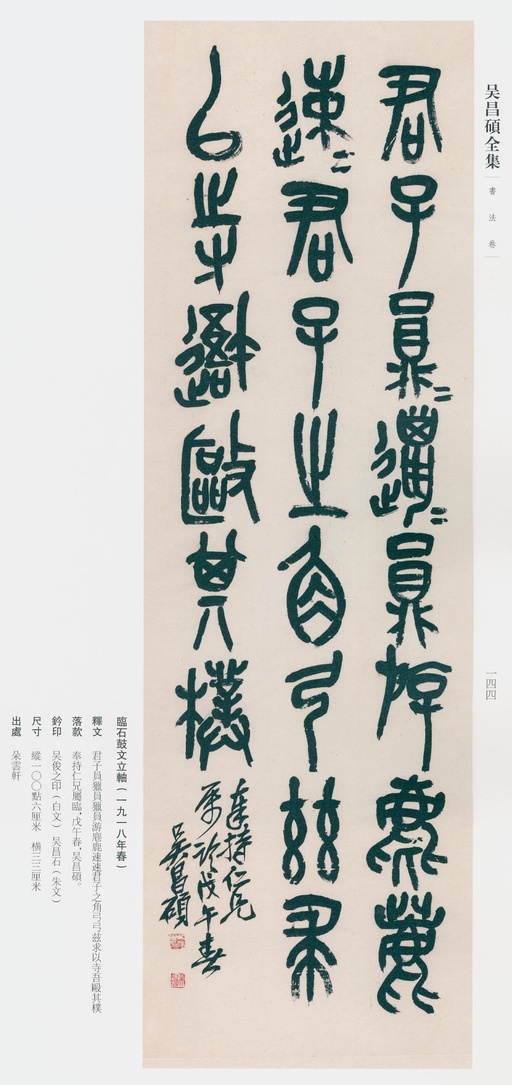 吴昌碩全集
書法卷
一四四
君子員=邋=員斿麀鹿
速=君子之角弓茲求
以寺䢸敺其樸
奉持仁兄
屬臨戊午春
吴昌碩
臨石鼓文立軸（一九一八年春）
釋文　君子員獵員獵員游麀鹿速速君子之角弓弓兹求以寺吾毆其樸
落款　奉持仁兄屬臨，戊午春，吴昌碩。
鈐印　吴俊之印（白文）　吴昌石（朱文）
尺寸　縱一〇〇點六厘米　橫三三厘米
出處　朵雲軒